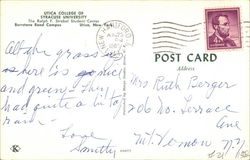 UTICA COLLEGE OF
SYRACUSE UNIVERSITY
The Ralph F. Strebel Student Center
Burrstone Road Campus Utica, New York
POST CARD
Address
All the grass is
so here is so nice
and green. They
had quite a bit of
rain.
Love
Smitty
Mrs Ruth Berger
206 No. Terrace
Ave
Mt. Vernon N.Y.